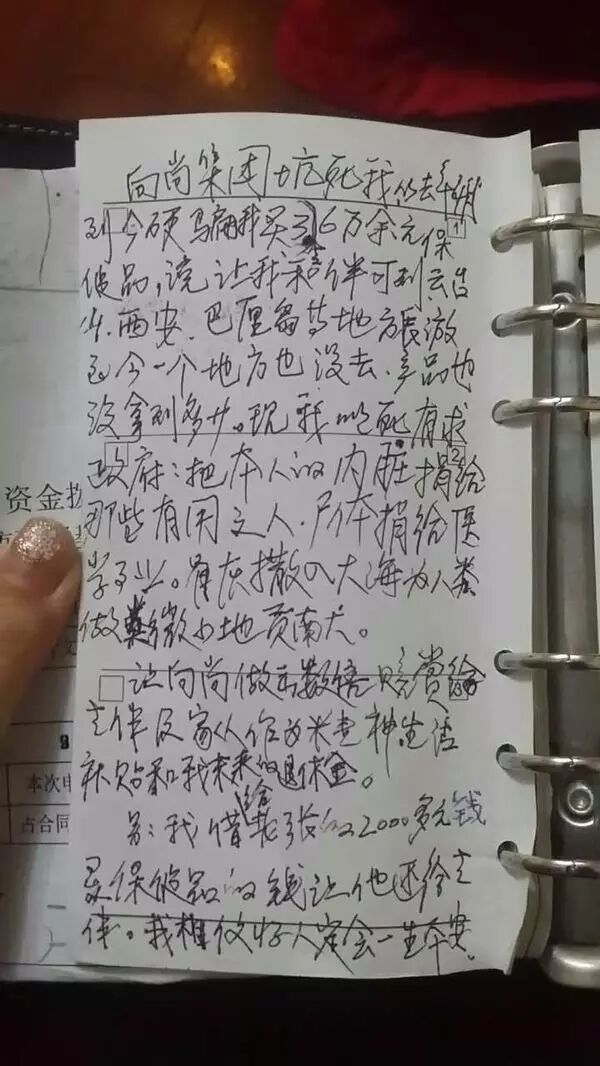 向尚集团坑死我 从去年
到今硬骗我买了6万余元保
健品,说让我和老伴可到五台
山、西安、巴厘岛等地方旅游
至今一个地方也没去,产品也
没拿到多少。现我以死有求
政府:把本人的内脏捐给
那些有用之人,尸体捐给医
学事业。骨灰撒入大海为人类
做微小地贡献。
让向尚做出数倍赔赏给
老伴及家人作为精神生活
补贴和我未来的退休金。
另:我借给 张 2000多元钱
买保健品的钱让他还给老
伴。我相信好人定会一生平安
资金
本次申
占合同